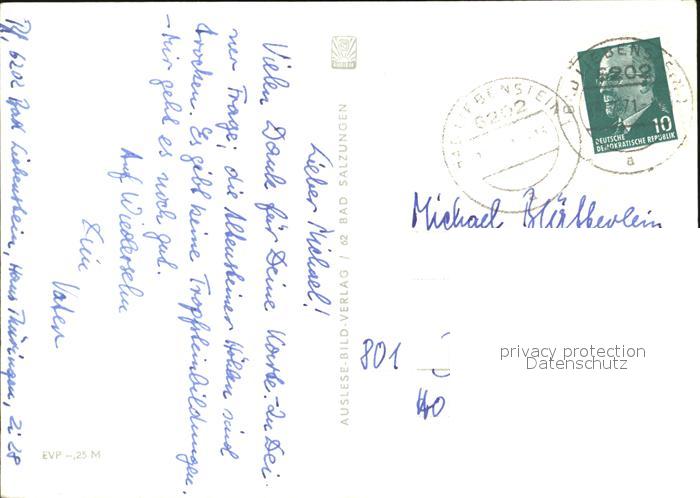 Lieber Michael!
Vielen Dank für Deine Karte. In Dei-
ner Frage; die Altensteiner Höhlen sind
trocken. Es gibt keine Tropfsteinbildungen.
– Mir geht es noch gut.
Auf Wiedersehn
Dein Vater
6202 Bad Liebenstein, Haus Thüringen, Zi 28
EVP –,25 M
AUSLESE-BILD-VERLAG / 62 BAD SALZUNGEN
BAD LIEBENSTEIN
6202
BAD LIEBENSTEIN
6202
71
a
10
DEUTSCHE
DEMOKRATISCHE REPUBLIK
Michael
801
40
privacy protection
Datenschutz